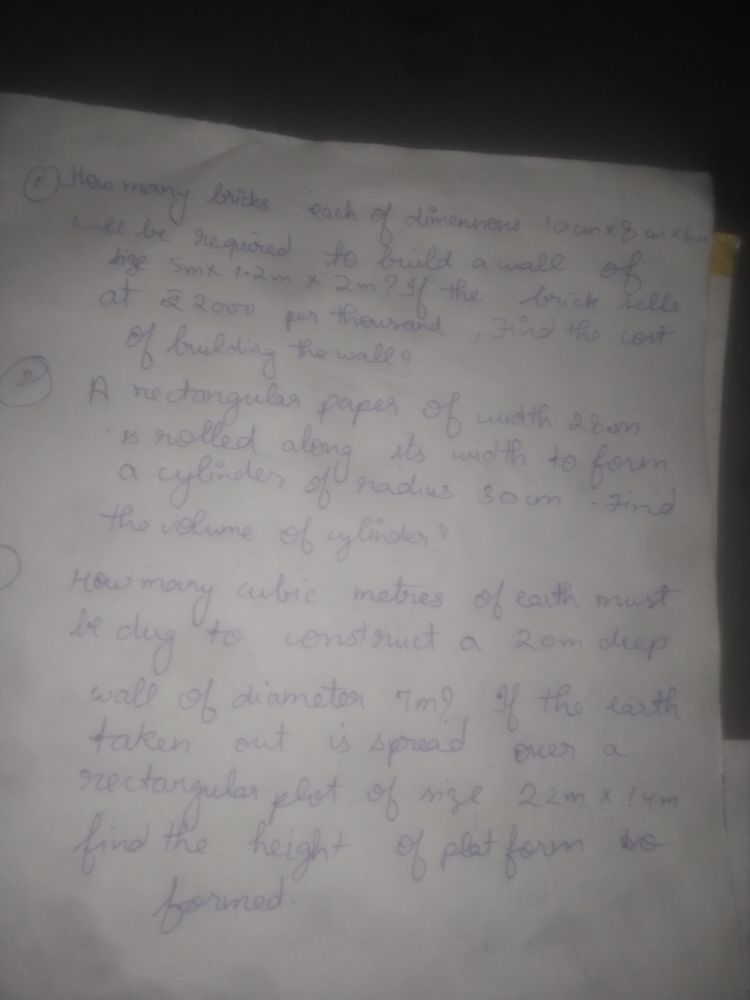 ① How many bricks each of dimensions 10cm×8cm×6cm
will be required to build a wall of
size 5m× 1.2m × 2m? If the brick sells
at ₹ 2000 per thousand, Find the cost
of building the wall?
② A rectangular paper of width 28cm
is rolled along its width to form
a cylinder of radius 30cm. Find
the volume of cylinder?
How many cubic metres of earth must
be dug to construct a 20m deep
wall of diameter 7m? If the earth
taken out is spread over a
rectangular plot of size 22m × 14m
find the height of platform so
formed.